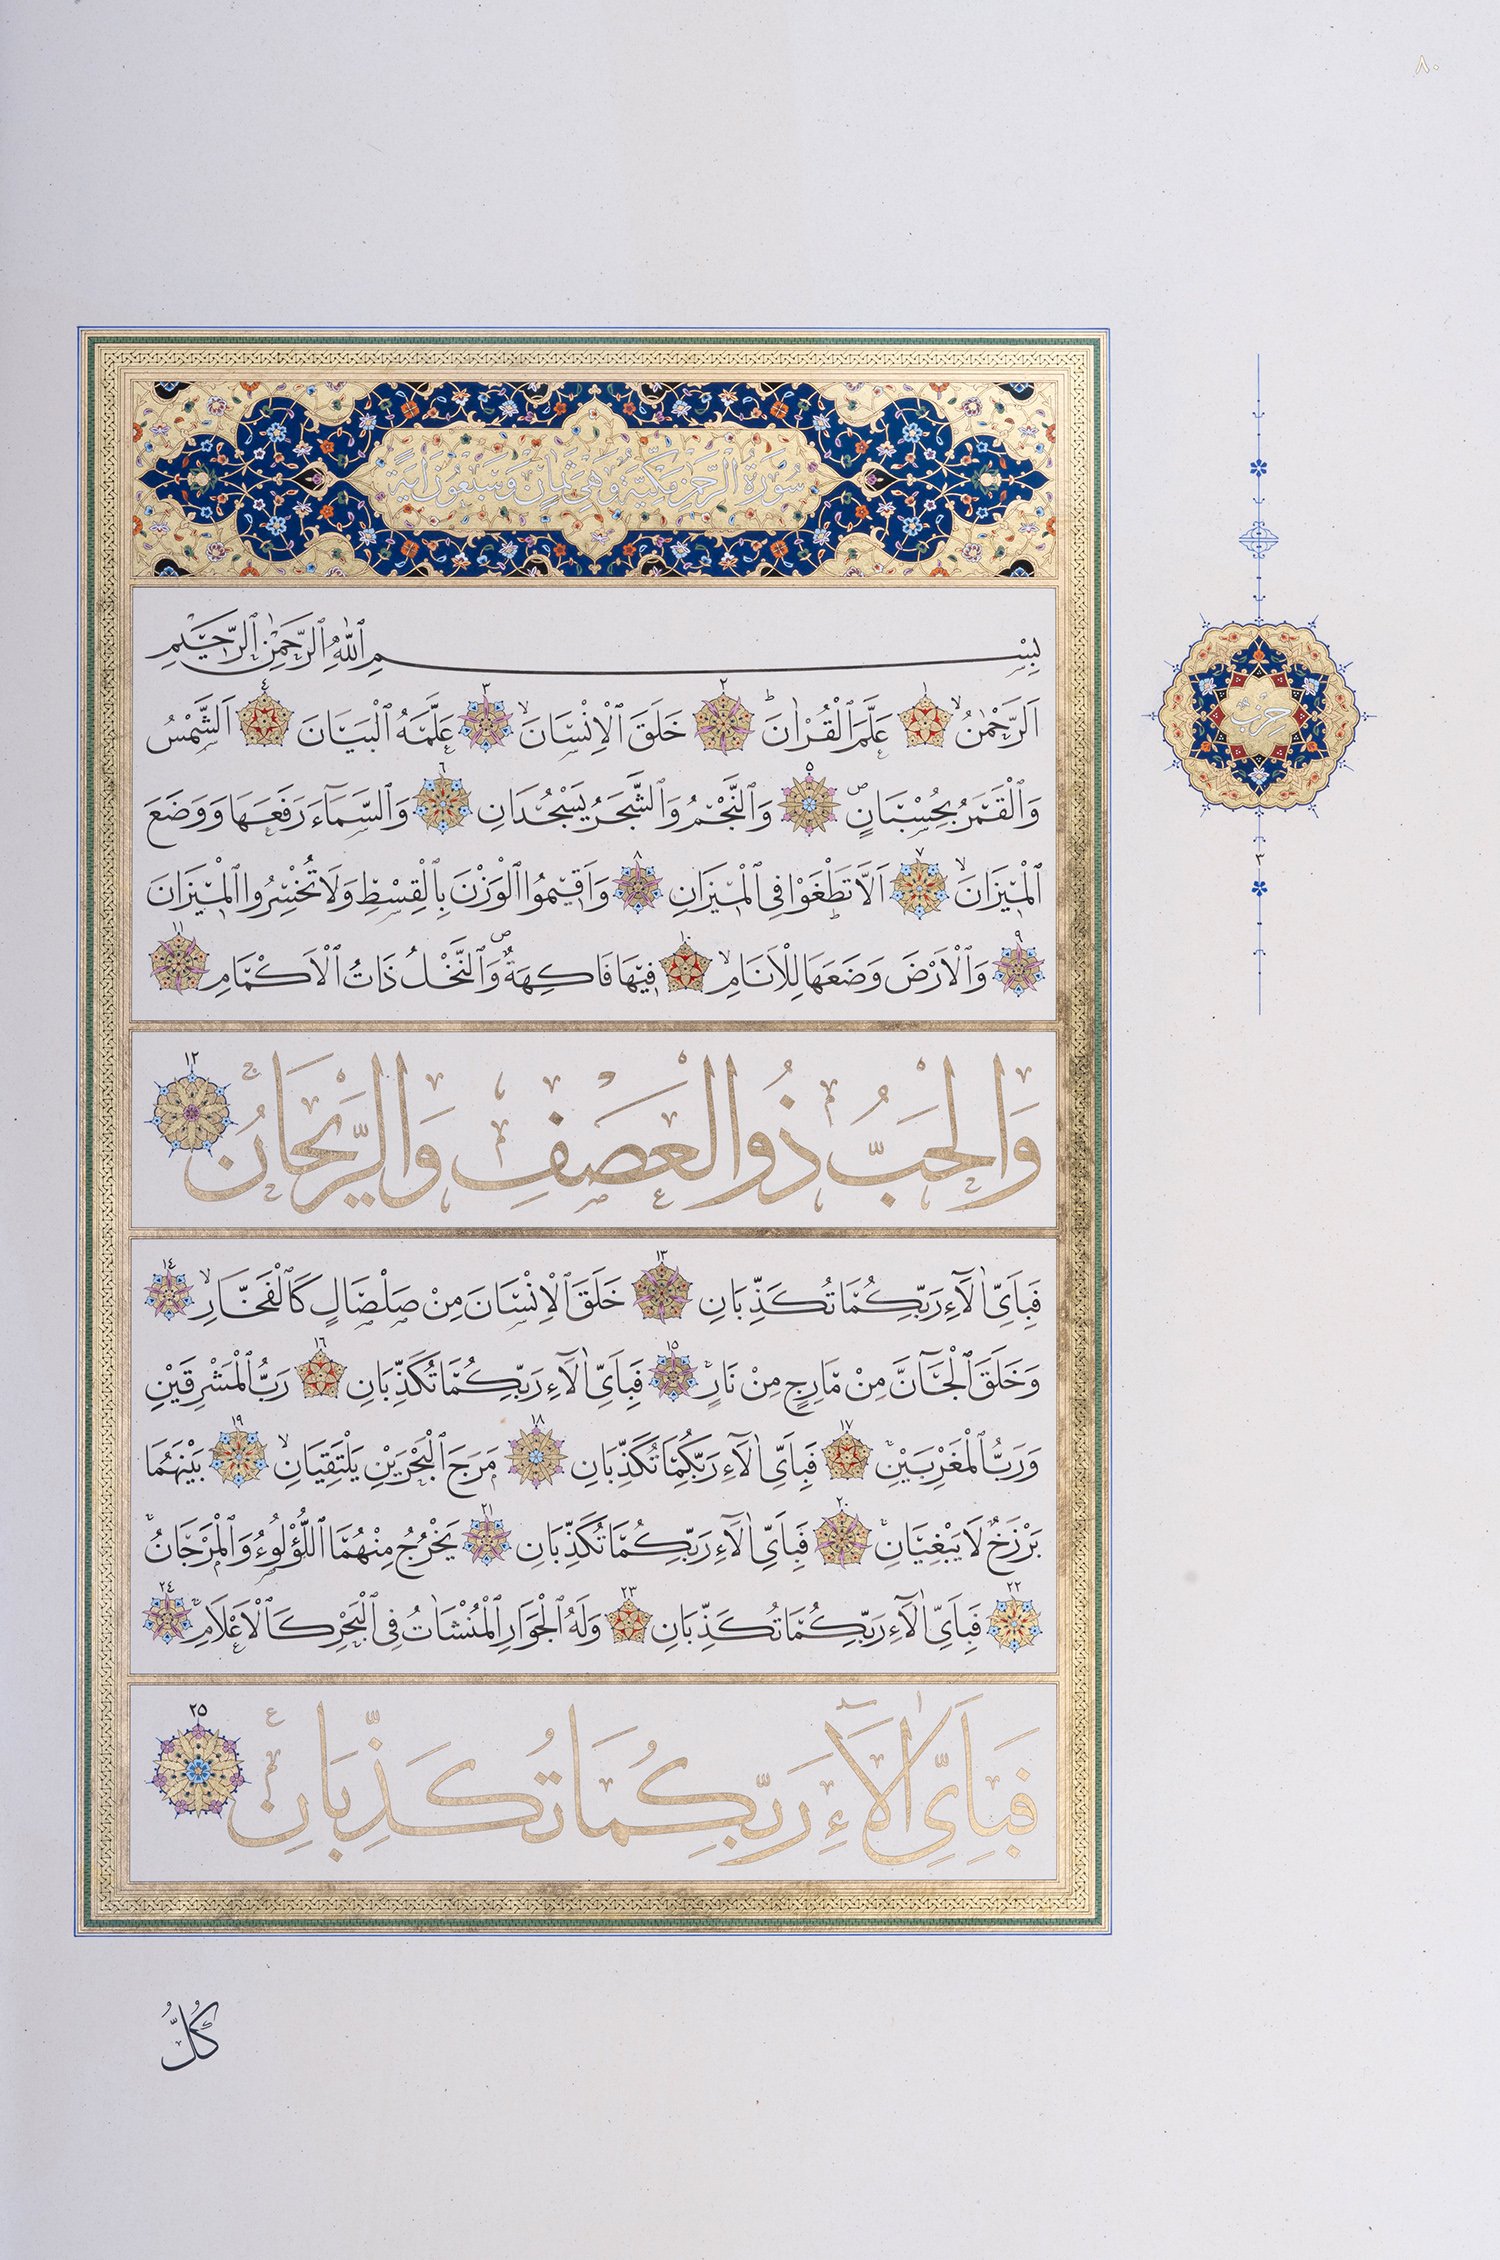 ٨٠
سُورَةُ الرَّحْمٰنِ مَكِّيَّةٌ وَهِيَ ثَمَانٍ وَسَبْعُونَ اٰيَةً
بِسْمِ ٱللّٰهِ ٱلرَّحْمٰنِ ٱلرَّحِيمِ
اَلرَّحْمٰنُۙ ١ عَلَّمَ ٱلْقُرْاٰنَۜ ٢ خَلَقَ ٱلْاِنْسَانَۙ ٣ عَلَّمَهُ ٱلْبَيَانَ ٤ اَلشَّمْسُ
وَٱلْقَمَرُ بِحُسْبَانٍۖ ٥ وَٱلنَّجْمُ وَٱلشَّجَرُ يَسْجُدَانِ ٦ وَٱلسَّمَآءَ رَفَعَهَا وَوَضَعَ
ٱلْمِيزَانَۙ ٧ اَلَّا تَطْغَوْا فِى ٱلْمِيزَانِ ٨ وَاَقِيمُوا ٱلْوَزْنَ بِٱلْقِسْطِ وَلَا تُخْسِرُوا ٱلْمِيزَانَ
٩ وَٱلْاَرْضَ وَضَعَهَا لِلْاَنَامِۙ ١٠ فِيهَا فَاكِهَةٌۖ وَٱلنَّخْلُ ذَاتُ ٱلْاَكْمَامِ ١١
وَالْحَبُّ ذُو الْعَصْفِ وَالرَّيْحَانُۚ ١٢
فَبِاَىِّ اٰلَآءِ رَبِّكُمَا تُكَذِّبَانِ ١٣ خَلَقَ ٱلْاِنْسَانَ مِنْ صَلْصَالٍ كَٱلْفَخَّارِۙ ١٤
وَخَلَقَ ٱلْجَآنَّ مِنْ مَارِجٍ مِنْ نَارٍۚ ١٥ فَبِاَىِّ اٰلَآءِ رَبِّكُمَا تُكَذِّبَانِ ١٦ رَبُّ ٱلْمَشْرِقَيْنِ
وَرَبُّ ٱلْمَغْرِبَيْنِۚ ١٧ فَبِاَىِّ اٰلَآءِ رَبِّكُمَا تُكَذِّبَانِ ١٨ مَرَجَ ٱلْبَحْرَيْنِ يَلْتَقِيَانِۙ ١٩ بَيْنَهُمَا
بَرْزَخٌ لَا يَبْغِيَانِۚ ٢٠ فَبِاَىِّ اٰلَآءِ رَبِّكُمَا تُكَذِّبَانِ ٢١ يَخْرُجُ مِنْهُمَا ٱللُّؤْلُوءُ وَٱلْمَرْجَانُۚ
٢٢ فَبِاَىِّ اٰلَآءِ رَبِّكُمَا تُكَذِّبَانِ ٢٣ وَلَهُ ٱلْجَوَارِ ٱلْمُنْشَاٰتُ فِى ٱلْبَحْرِ كَٱلْاَعْلَامِۚ ٢٤
فَبِاَىِّ اٰلَآءِ رَبِّكُمَا تُكَذِّبَانِ۟ ع ٢٥
حِزْبٌ
٣
كُلُّ